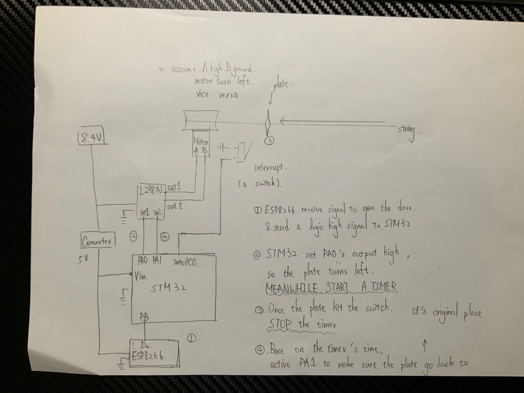 = assume A high B ground
motor turn left.
vice versa.
plate.
8.4V
Motor
A B
②
string.
interrupt.
(a switch).
L298N
out1
out 2
in1 in2
②
④
Converter
5V
PA0 PA1
Vin
STM32
PB
①
ESP8266
① ESP8266 receive signal to open the door.
& send a logic high signal to STM32
② STM32 set PA0's output high,
so the plate turns left.
MEANWHILE START A TIMER
③ Once the plate hit the switch.
STOP the timer
it's original place
↑
④ Base on the timer's time,
active PA1 to make sure the plate go back to